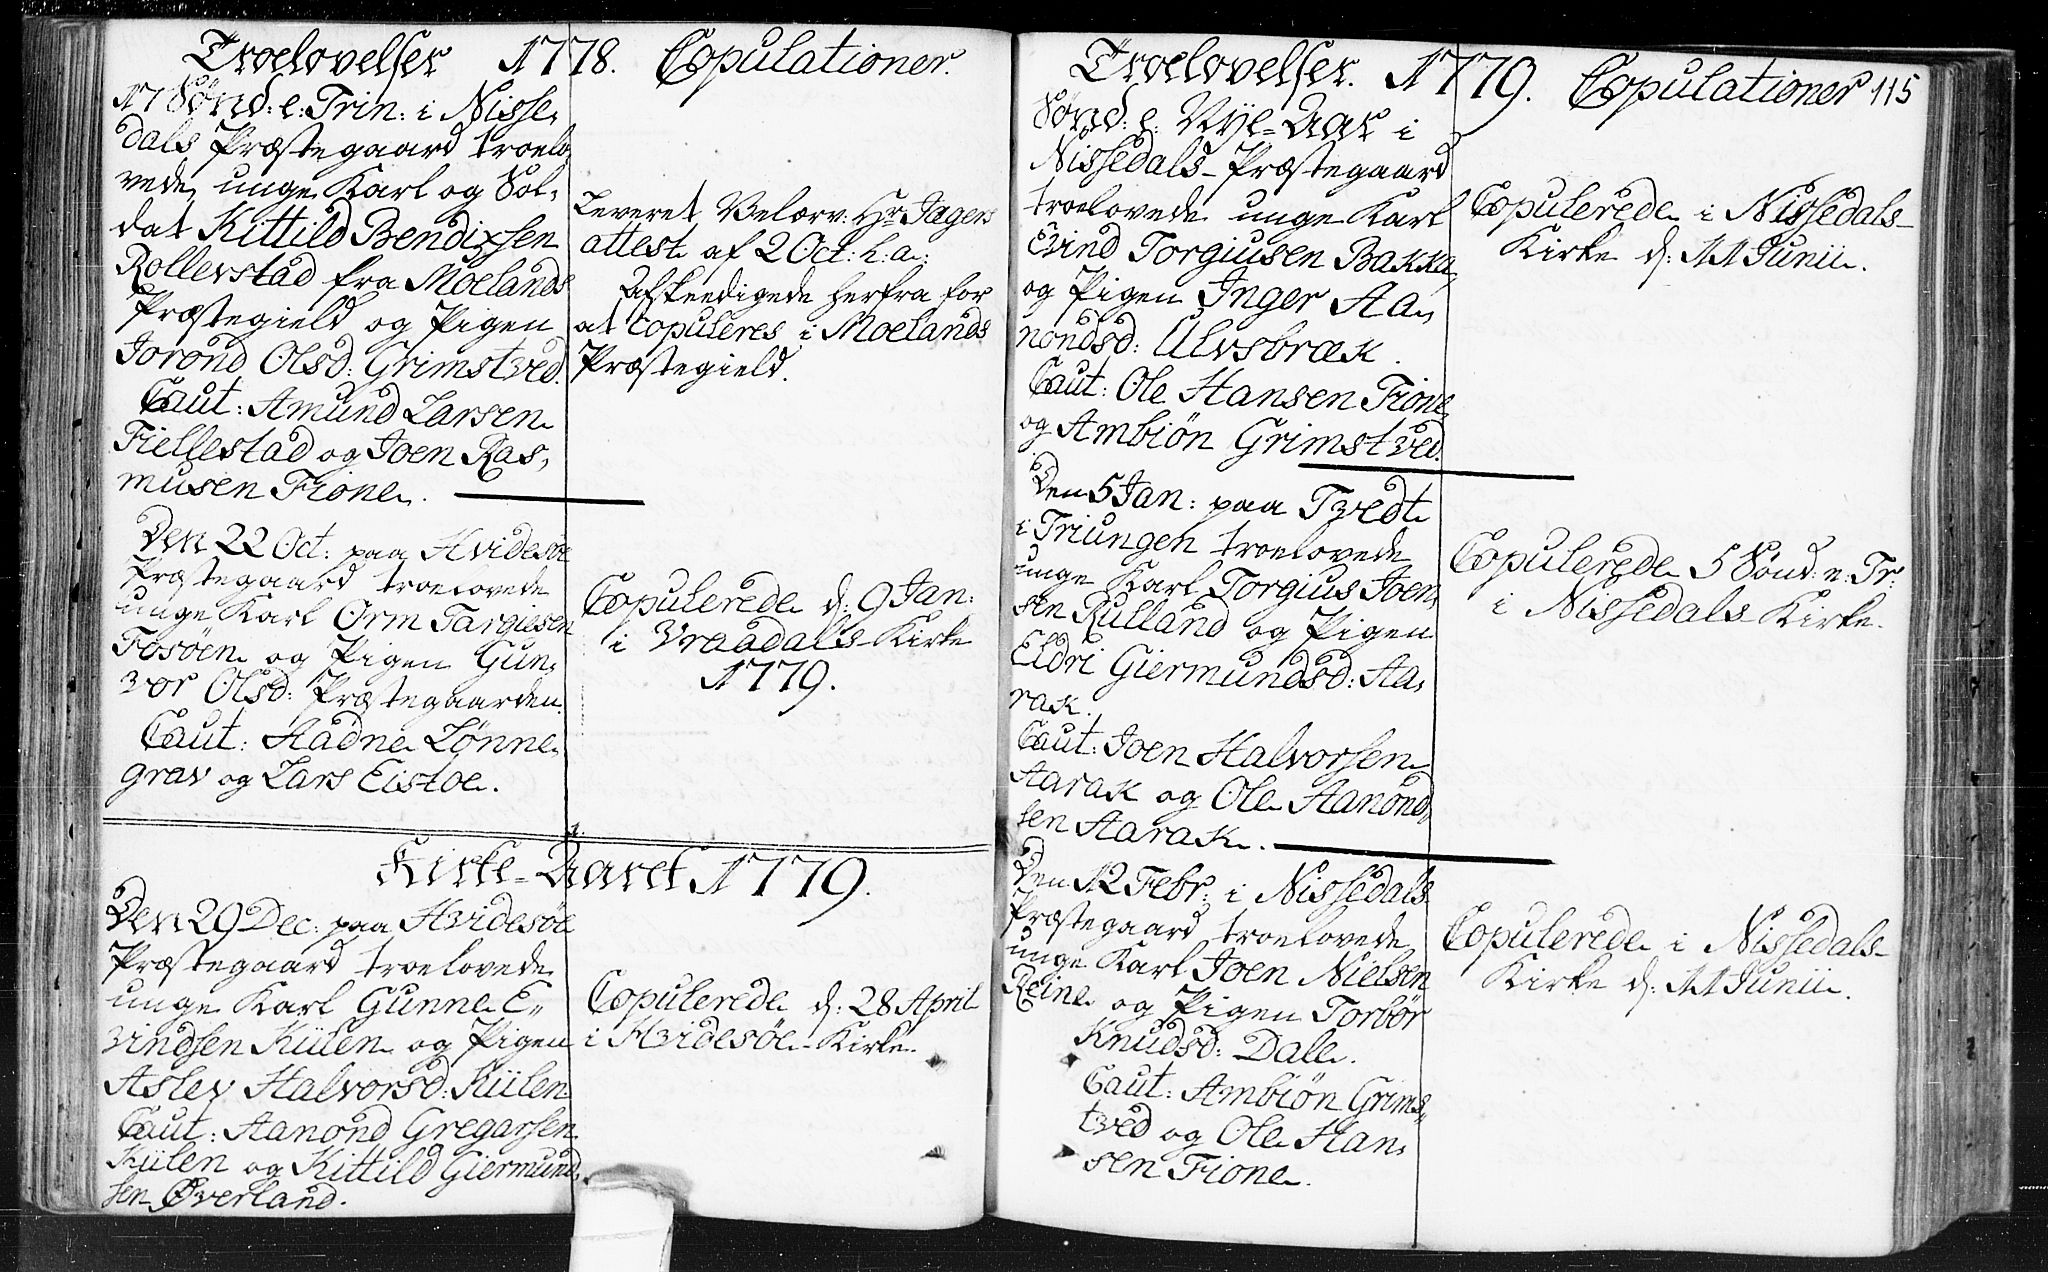 Troelovelser 1778. Copulationer.
17 Sønd: e: Trin: i Nisse,
dals Præstegaard troelo,
vede unge Karl og Sol,
dat Kittild Bendixsen
Rollevstad fra Moelands
Præstegield og Pigen
Jorond Olsd: Grimstved.
Caut: Amund Larsen
Fiellestad og Joen Ras,
musen Fione.
Leveret Velærv: Hr Jagers
attest af 2 Oct: h: a:
Afskeedigede herfra for
at copuleres i Moelands
Præstegield.
Den 22 Oct: paa Hvidesøe
Præstegaard troelovede
unge Karl Orm Targiesen
Fosøen og Pigen Gun,
vor Olsd: Præstegaarden.
Caut: Hadne Lønne,
grav og Lars Eistoe.
Copulerede d: 9 Jan:
i Vraadals Kirke
1779.
Kirke-Aaret 1779.
Den 29 Dec: paa Hvidesøe
Præstegaard troelovede
unge Karl Gunne E,
vindsen Kiilen og Pigen
Aslev Halvorsd: Kiilen
Caut: Aanond Gregarsen
Kiilen og Kittild Giermund,
sen Øverland.
Copulerede d: 28 April
i Hvidesøe-Kirke.
Troelovelser. 1779. Copulationer 115
Sønd: e: Nye-Aar i
Nissedals-Præstegaard
troelovede unge Karl
Evind Torgiusen Bakka,
og Pigen Inger Aa,
nondsd: Ulvsbræk.
Caut: Ole Hansen Fione
og Ambiön Grimstved.
Copulerede i Nissedals-
Kirke d: 11 Junii.
Den 5 Jan: paa Tvedt
i Triungen troelovede
unge Karl Torgius Joen,
sen Rulland og Pigen
Eldri Giermundsd: Aa,
rak.
Caut: Joen Halvorsen
Aarak og Ole Aanond,
sen Aarak.
Copulerede 5 Sønd: e: Tr:
i Nissedals Kirke.
Den 12 Febr: i Nissedals
Præstegaard troelovede
unge Karl Joen Nielsen
Reine og Pigen Torbör
Knudsd: Dale.
Caut: Ambiön Grims,
tved og Ole Han,
sen Fione.
Copulerede i Nissedals-
Kirke d: 11 Junii.